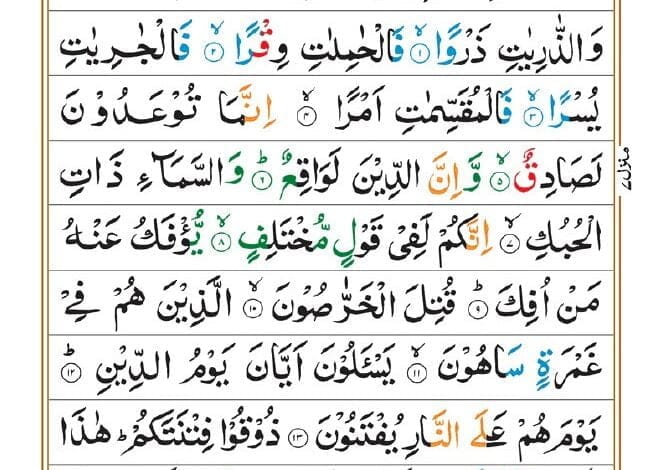 وَالذّٰرِيٰتِ ذَرْوًا ۙ﴿۱﴾ فَالْحٰمِلٰتِ وِقْرًا ۙ﴿۲﴾ فَالْجٰرِيٰتِ
يُسْرًا ۙ﴿۳﴾ فَالْمُقَسِّمٰتِ اَمْرًا ۙ﴿۴﴾ اِنَّمَا تُوْعَدُوْنَ
لَصَادِقٌ ۙ﴿۵﴾ وَّاِنَّ الدِّيْنَ لَوَاقِعٌ ؕ﴿۶﴾ وَالسَّمَآءِ ذَاتِ
الْحُبُكِ ۙ﴿۷﴾ اِنَّكُمْ لَفِيْ قَوْلٍ مُّخْتَلِفٍ ۙ﴿۸﴾ يُّؤْفَكُ عَنْهُ
مَنْ اُفِكَ ؕ﴿۹﴾ قُتِلَ الْخَرّٰصُوْنَ ۙ﴿۱۰﴾ الَّذِيْنَ هُمْ فِيْ
غَمْرَةٍ سَاهُوْنَ ۙ﴿۱۱﴾ يَسْـَٔلُوْنَ اَيَّانَ يَوْمُ الدِّيْنِ ؕ﴿۱۲﴾
يَوْمَ هُمْ عَلَي النَّارِ يُفْتَنُوْنَ ﴿۱۳﴾ ذُوْقُوْا فِتْنَتَكُمْ ؕ هٰذَا
منزل۷